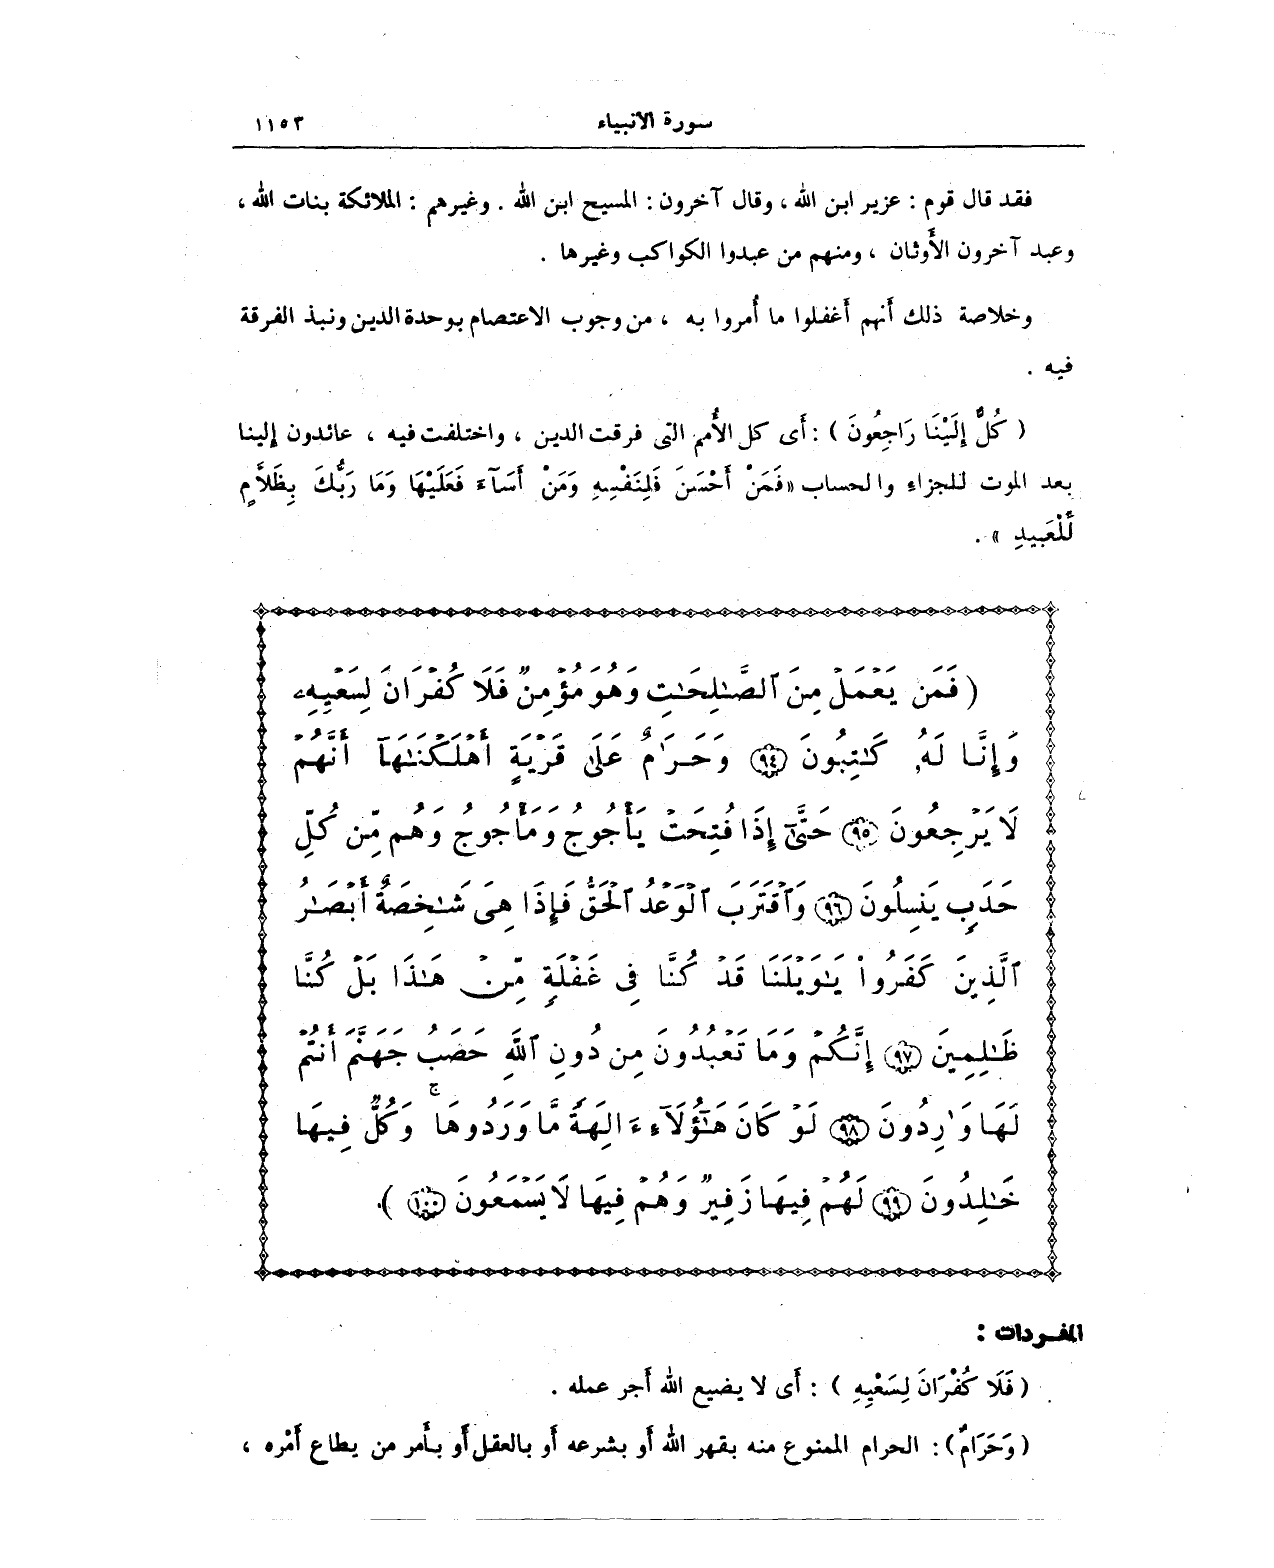 سورة الأنبياء ١١٥٣
فقد قال قوم : عزير ابن الله ، وقال آخرون : المسيح ابن الله . وغيرهم : الملائكة بنات الله ،
وعبد آخرون الأَوثان ، ومنهم من عبدوا الكواكب وغيرها .
وخلاصة ذلك أَنهم أَغفلوا ما أُمروا به ، من وجوب الاعتصام بوحدة الدين ونبذ الفرقة
فيه .
( كُلٌّ إِلَيْنَا رَاجِعُونَ ) : أَى كل الأُمم التى فرقت الدين ، واختلفت فيه ، عائدون إلينا
بعد الموت للجزاء والحساب «فَمَنْ أَحْسَنَ فَلِنَفْسِهِ وَمَنْ أَسَآءَ فَعَلَيْهَا وَمَا رَبُّكَ بِظَلَّامٍ
لِّلْعَبِيدِ » .
( فَمَن يَعْمَلْ مِنَ ٱلصَّـٰلِحَـٰتِ وَهُوَ مُؤْمِنٌ فَلَا كُفْرَانَ لِسَعْيِهِۦ
وَإِنَّا لَهُۥ كَـٰتِبُونَ ٩٤ وَحَرَٰمٌ عَلَىٰ قَرْيَةٍ أَهْلَكْنَـٰهَآ أَنَّهُمْ
لَا يَرْجِعُونَ ٩٥ حَتَّىٰٓ إِذَا فُتِحَتْ يَأْجُوجُ وَمَأْجُوجُ وَهُم مِّن كُلِّ
حَدَبٍ يَنسِلُونَ ٩٦ وَٱقْتَرَبَ ٱلْوَعْدُ ٱلْحَقُّ فَإِذَا هِىَ شَـٰخِصَةٌ أَبْصَـٰرُ
ٱلَّذِينَ كَفَرُوا۟ يَـٰوَيْلَنَا قَدْ كُنَّا فِى غَفْلَةٍ مِّنْ هَـٰذَا بَلْ كُنَّا
ظَـٰلِمِينَ ٩٧ إِنَّكُمْ وَمَا تَعْبُدُونَ مِن دُونِ ٱللَّهِ حَصَبُ جَهَنَّمَ أَنتُمْ
لَهَا وَٰرِدُونَ ٩٨ لَوْ كَانَ هَـٰٓؤُلَآءِ ءَالِهَةً مَّا وَرَدُوهَا ۚ وَكُلٌّ فِيهَا
خَـٰلِدُونَ ٩٩ لَهُمْ فِيهَا زَفِيرٌ وَهُمْ فِيهَا لَا يَسْمَعُونَ ١٠٠ ).
المفـردات :
( فَلَا كُفْرَانَ لِسَعْيِهِ ) : أَى لا يضيع الله أَجر عمله .
( وَحَرَامٌ ) : الحرام الممنوع منه بقهر الله أَو بشرعه أَو بالعقل أَو بأَمر من يطاع أَمْره ،